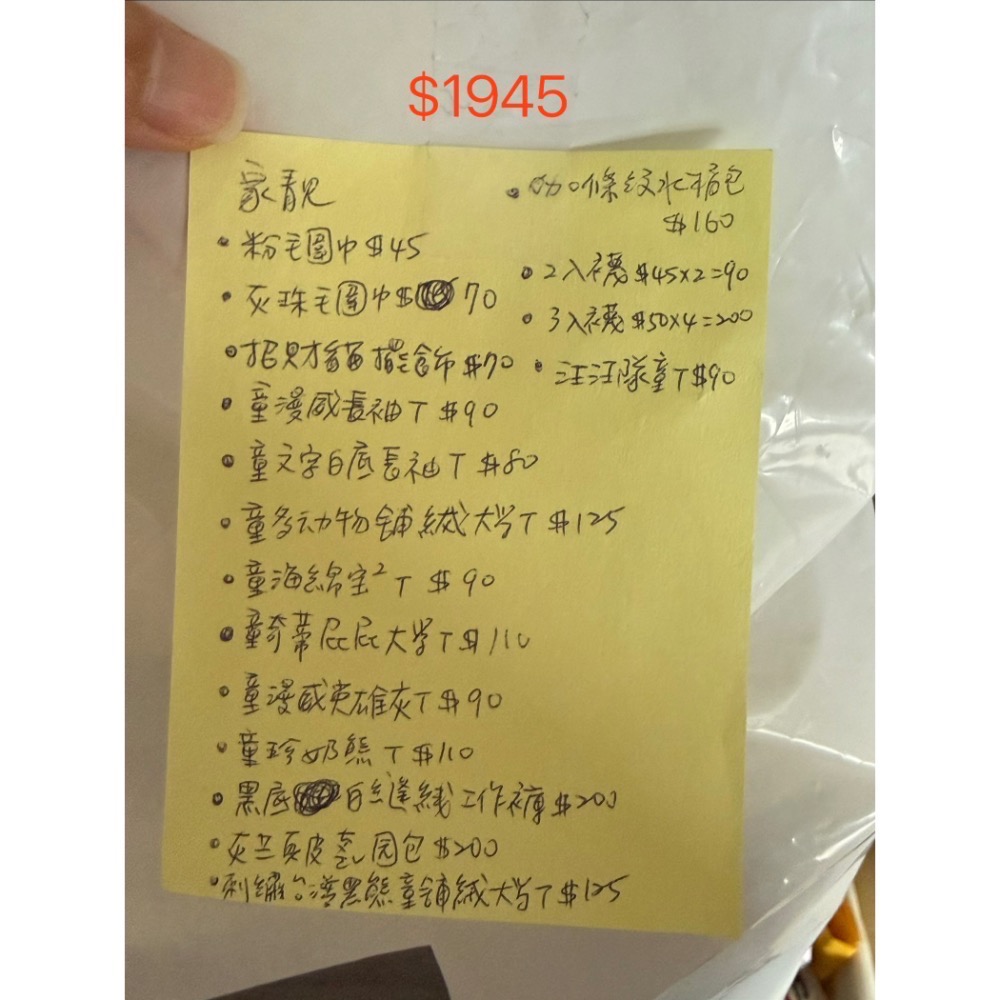 $1945
家靚
• 粉毛圍巾 $45
• 灰珠毛圍巾 $ 70
• 招財貓擺飾 $70
• 童漫威長袖T $90
• 童文字白底長袖T $80
• 童多动物铺絨大学T $125
• 童海綿宝² T $90
• 童奇蒂屁屁大学T $110
• 童漫威英雄灰T $90
• 童珍奶熊T $110
• 黑底 白縫綫工作褲 $200
• 灰兰真皮 园包 $200
• 刺繡台湾黑熊童铺絨大学T $125
• 咖條纹水桶包
$160
• 2入襪 $45x2=90
• 3入襪 $50x4=200
• 汪汪隊童T $90